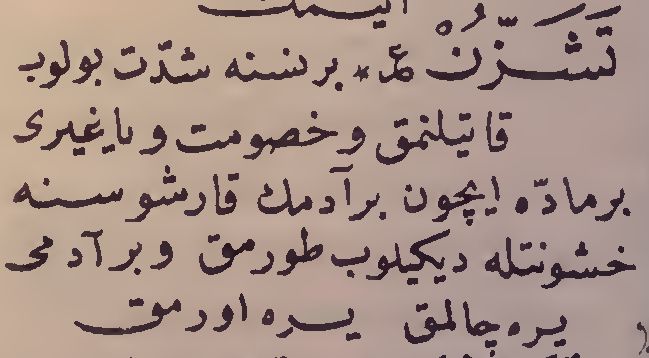 ايتمك
تَشَزُّنْ ع * برنسنه شدّت بولوب
قاتيلنمق و خصومت و ياغيرى
برمادّه ايچون برآدمك قارشوسنه
خشونتله ديكيلوب طورمق وبر آدمى
يره چالمق يره اورمق